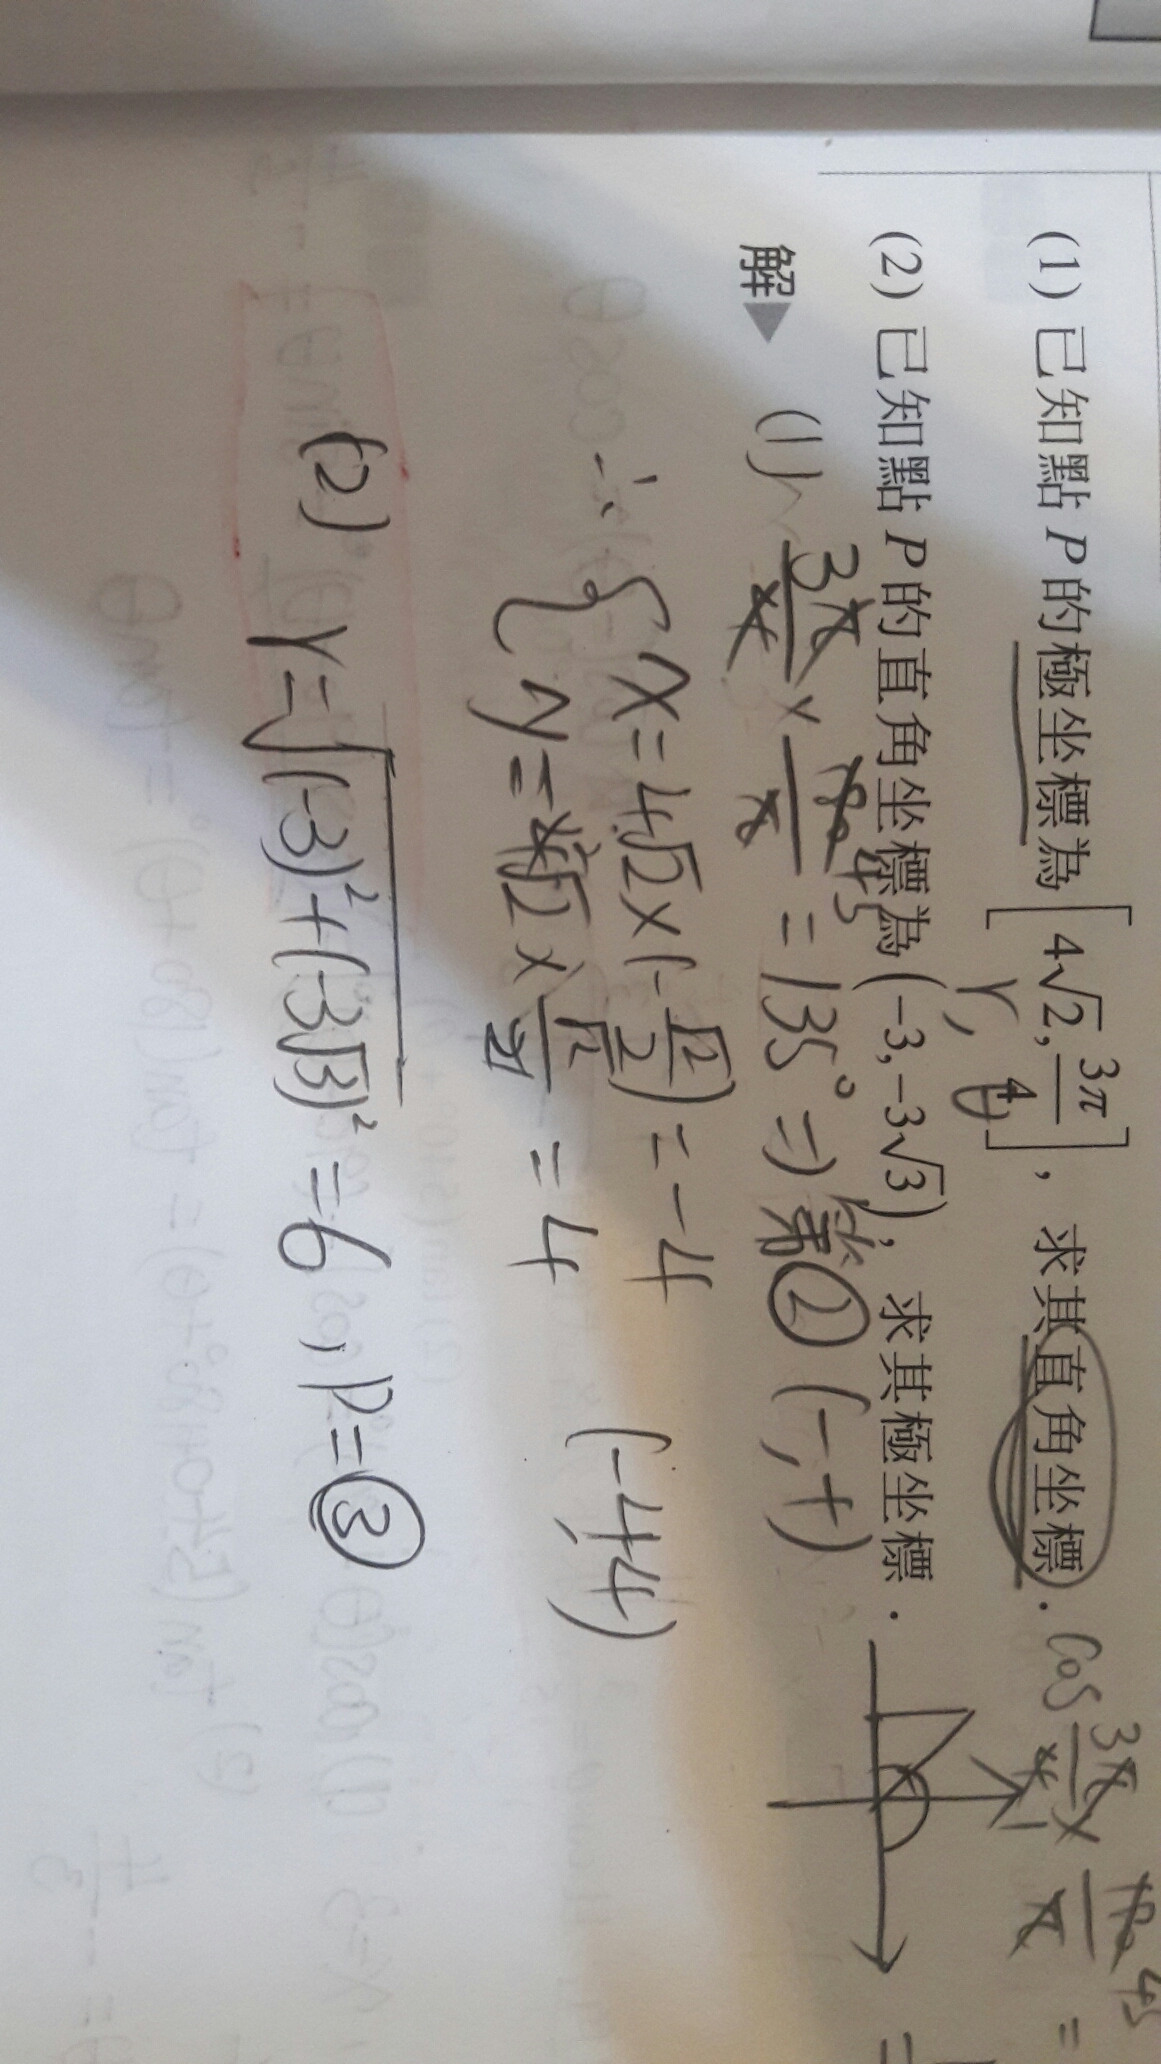 (1) 已知點 P 的極坐標為 [4√2, 3π/4], 求其直角坐標. cos 3π/4 × 180 45/π =
r, θ
(2) 已知點 P 的直角坐標為 (-3, -3√3), 求其極坐標.
解▶ (1) 3π/4 × 180 45/π = 135° ⇒ 第② (-,+)
∴ { x = 4√2 × (-√2/2) = -4
y = 4√2 × √2/2 = 4 (-4,4)
(2) r = √(-3)² + (-3√3)² = 6, P = ③